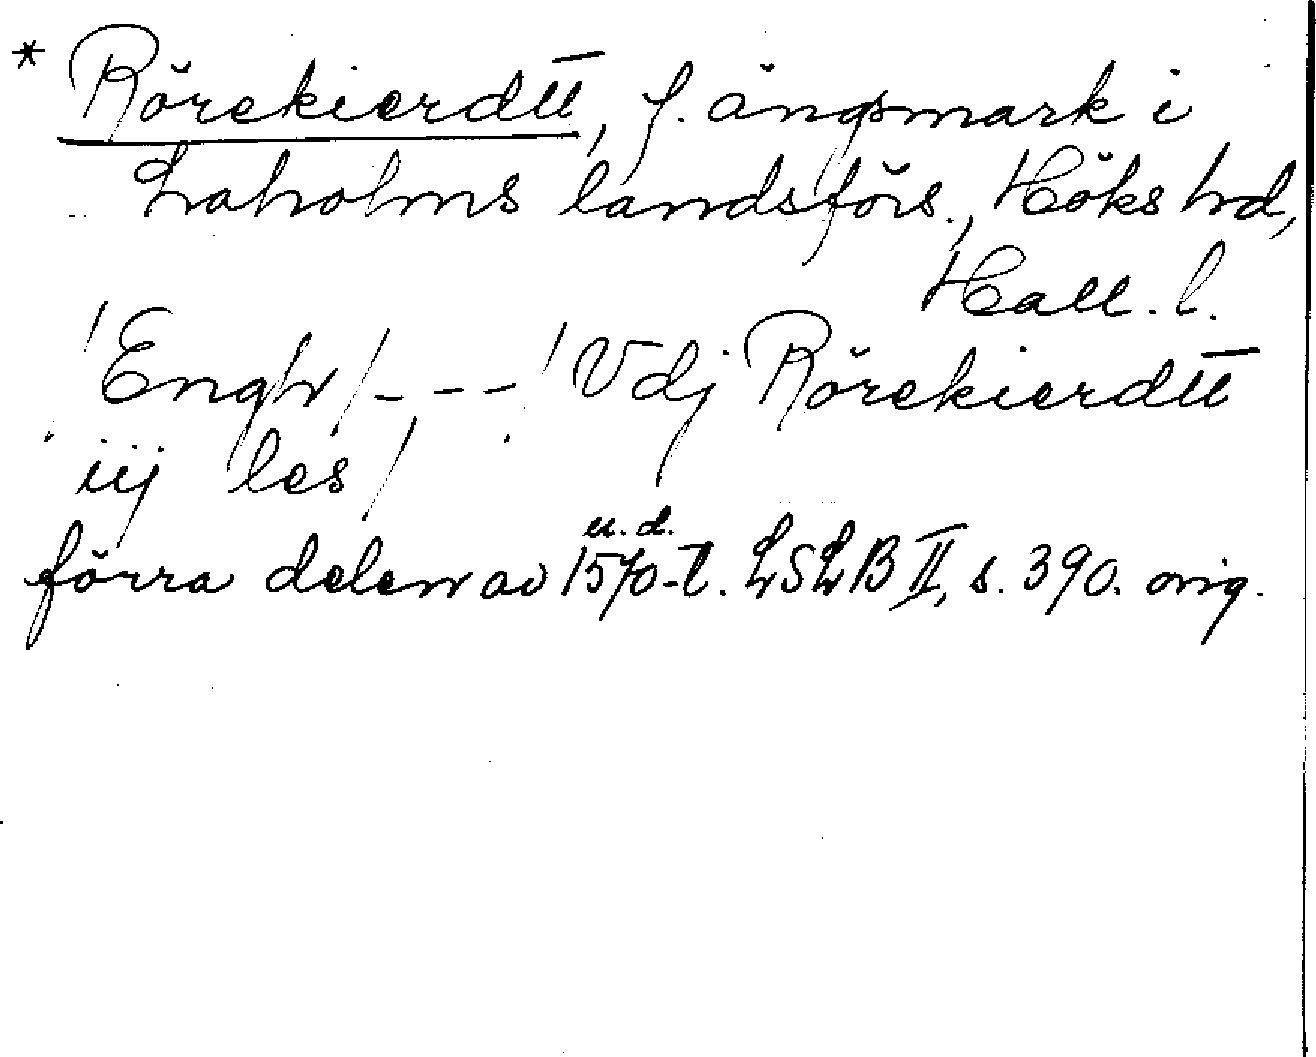 * Rörekierdtt, f. ängsmark i
Laholms landsförs., Höks hrd,
Hall. l.
/Engh/ - - - /Vdj Rörekierdtt
iij les/
u. d.
förra delen av 1570-t. LSLB II, s. 390. orig.